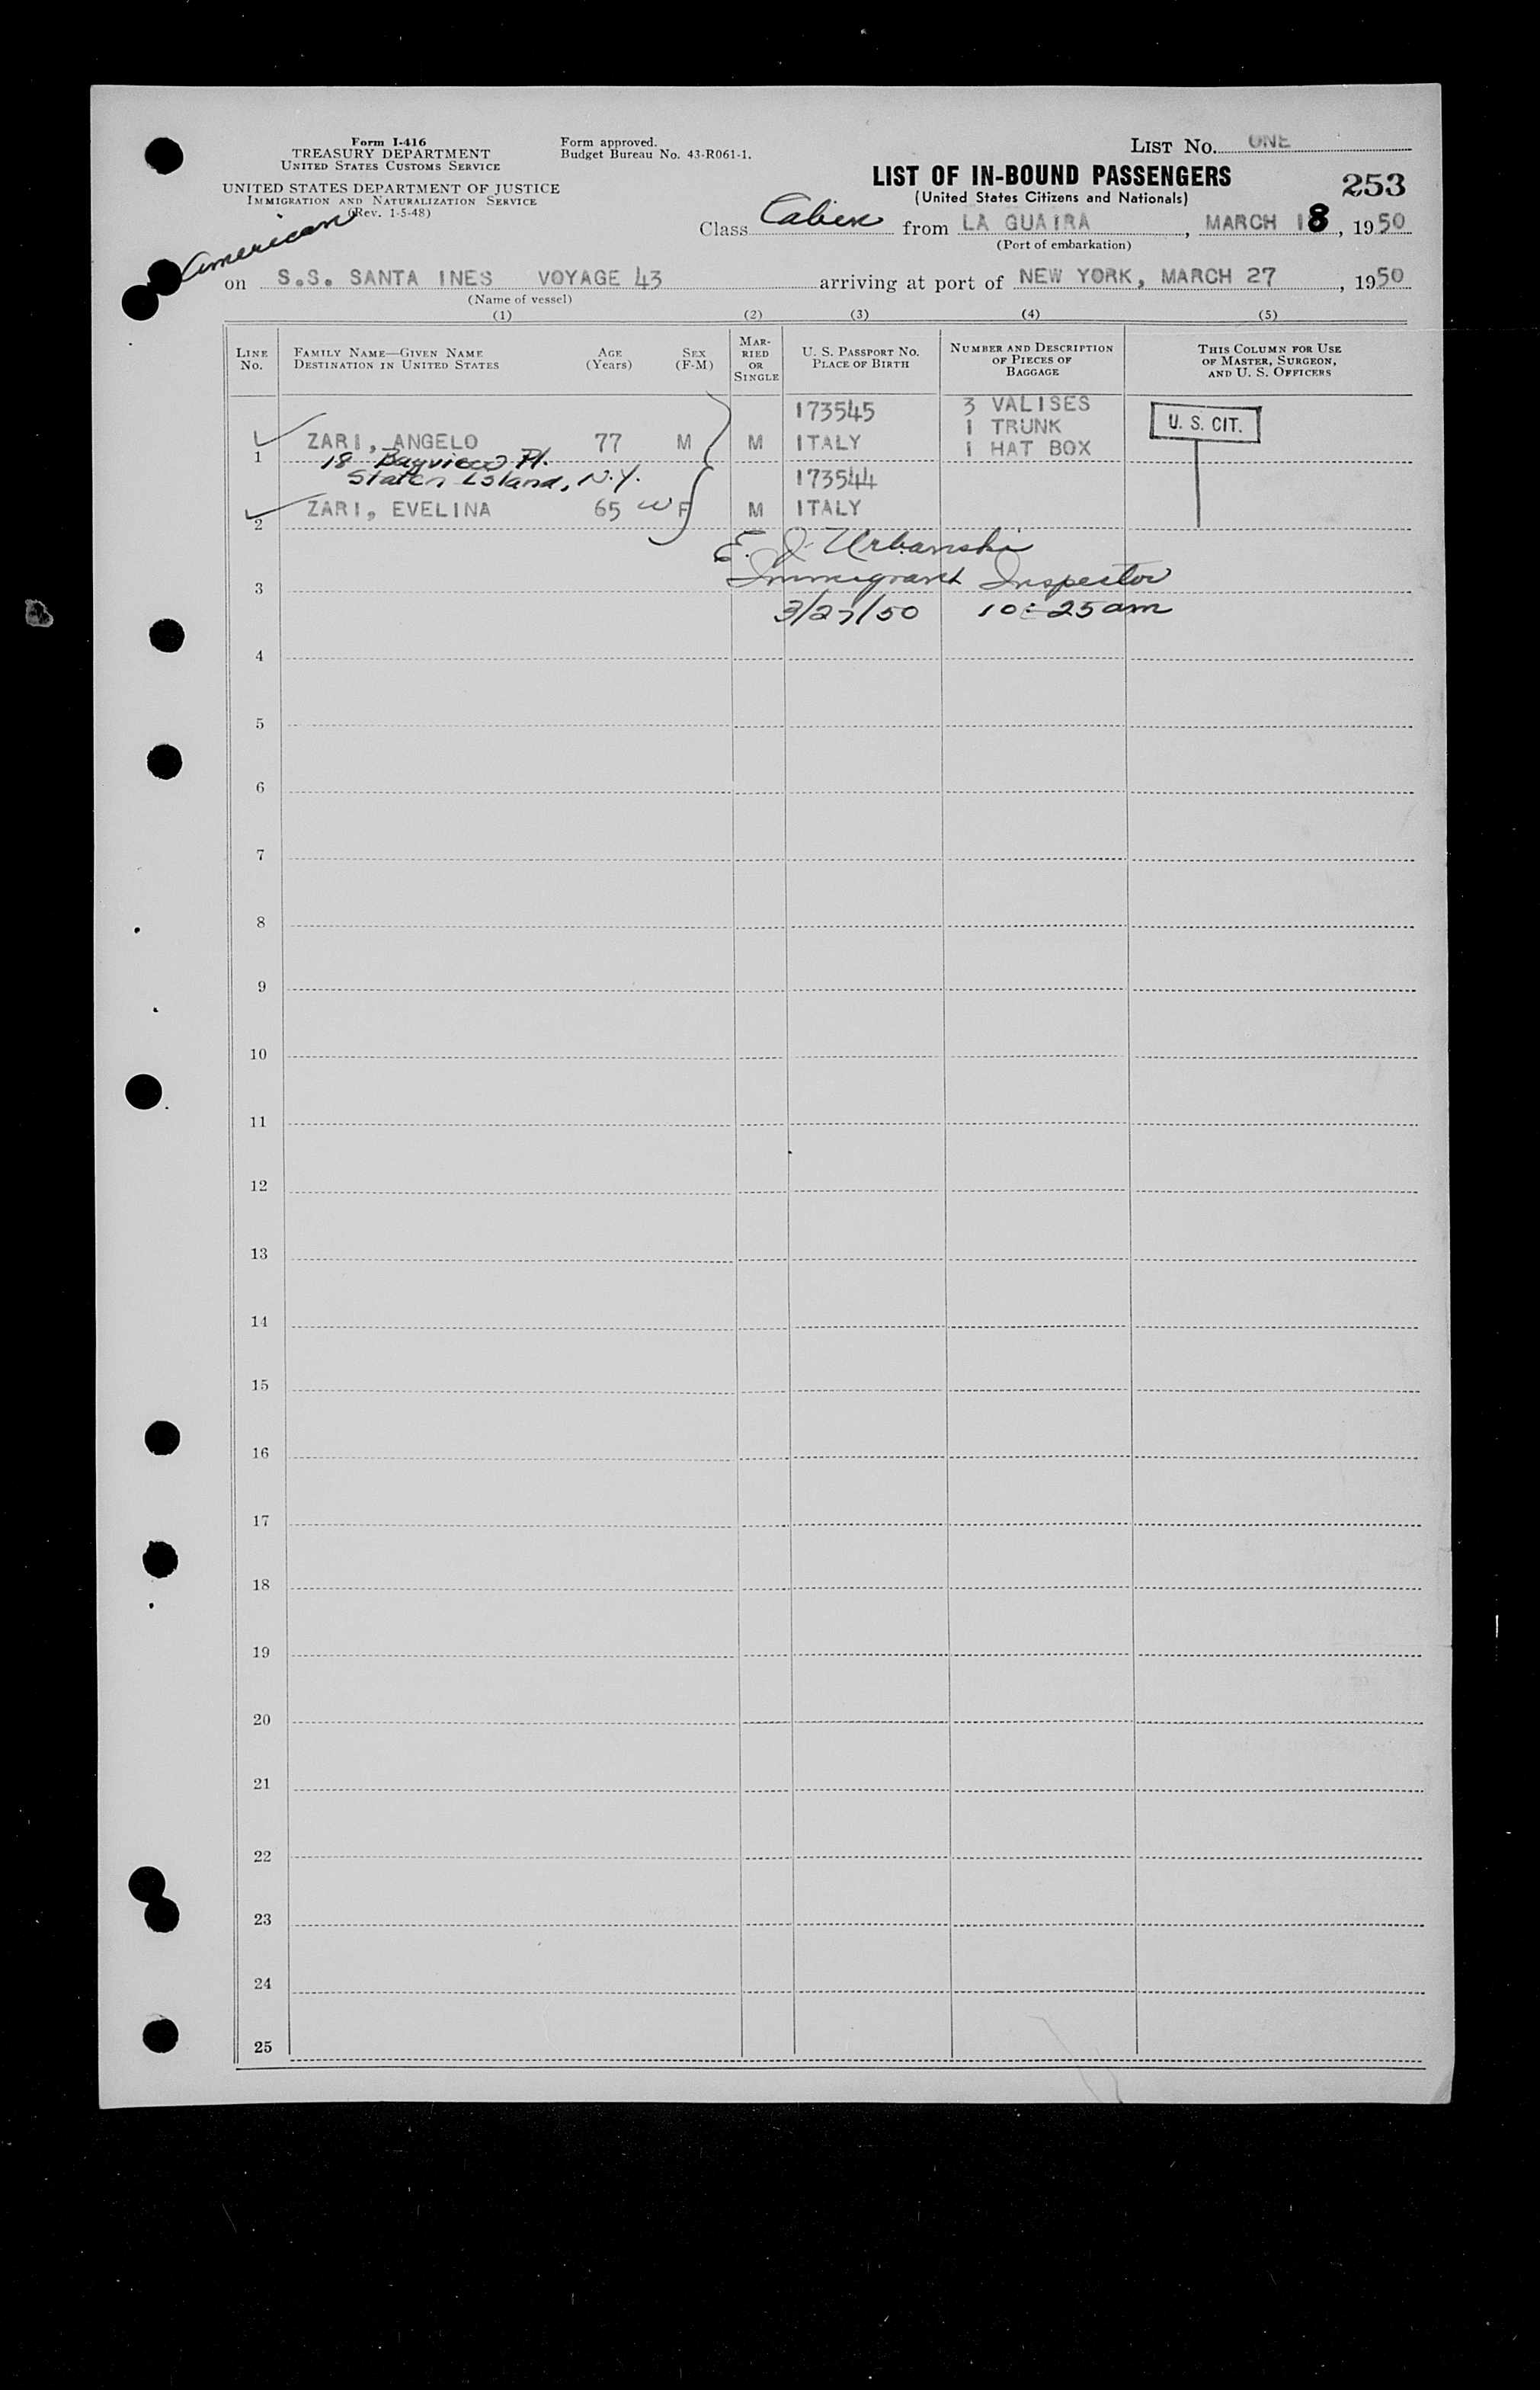 Form I-416
TREASURY DEPARTMENT
UNITED STATES CUSTOMS SERVICE
UNITED STATES DEPARTMENT OF JUSTICE
IMMIGRATION AND NATURALIZATION SERVICE
(Rev. 1-5-48)
American
Form approved.
Budget Bureau No. 43-R061-1.
LIST NO. ONE
LIST OF IN-BOUND PASSENGERS
(United States Citizens and Nationals)
253
Class Cabin from LA GUAIRA, MARCH 18, 1950
(Port of embarkation)
on S.S. SANTA INES VOYAGE 43 arriving at port of NEW YORK, MARCH 27, 1950
(Name of vessel)
(1) (2) (3) (4) (5)
LINE NO.
FAMILY NAME—GIVEN NAME
DESTINATION IN UNITED STATES
AGE
(Years)
SEX
(F-M)
MAR-
RIED
OR
SINGLE
U. S. PASSPORT NO.
PLACE OF BIRTH
NUMBER AND DESCRIPTION
OF PIECES OF
BAGGAGE
THIS COLUMN FOR USE
OF MASTER, SURGEON,
AND U. S. OFFICERS
173545 3 VALISES
1 TRUNK
U. S. CIT.
1 ZARI, ANGELO 77 M M ITALY 1 HAT BOX
18 Bayview Pl.
Staten Island, N.Y. 173544
2 ZARI, EVELINA 65 W F M ITALY
E. J. Urbanski
Immigrant Inspector
3
3/27/50 10:25am
4
5
6
7
8
9
10
11
12
13
14
15
16
17
18
19
20
21
22
23
24
25